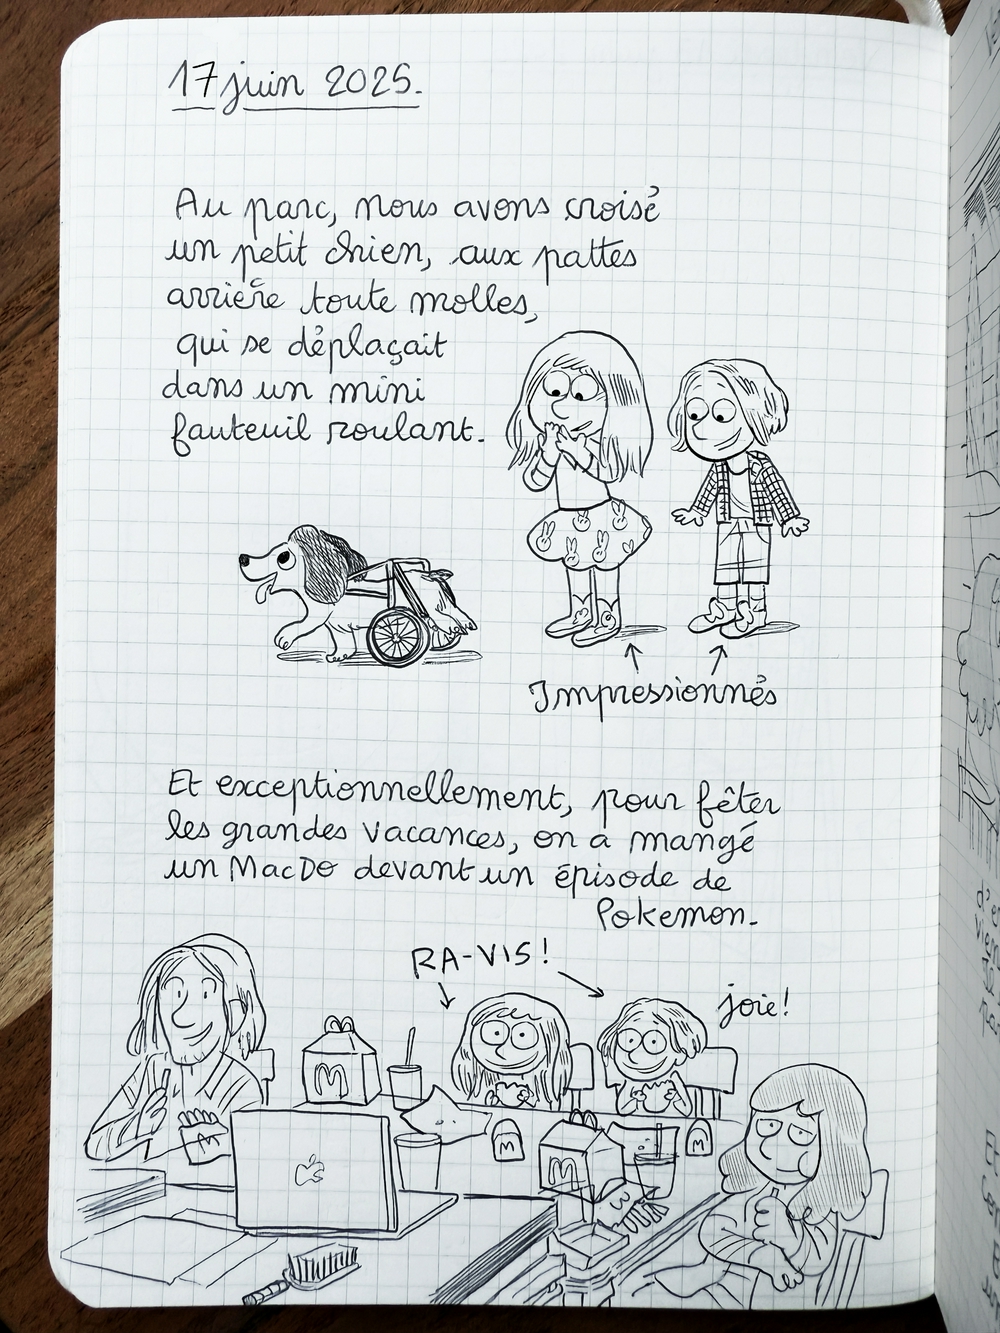 17 juin 2025.
Au parc, nous avons croisé
un petit chien, aux pattes
arrière toute molles,
qui se déplaçait
dans un mini
fauteuil roulant.
Impressionnés
Et exceptionnellement, pour fêter
les grandes vacances, on a mangé
un MacDo devant un épisode de
Pokemon.
RA-VIS!
joie!
M
M
M
M
M